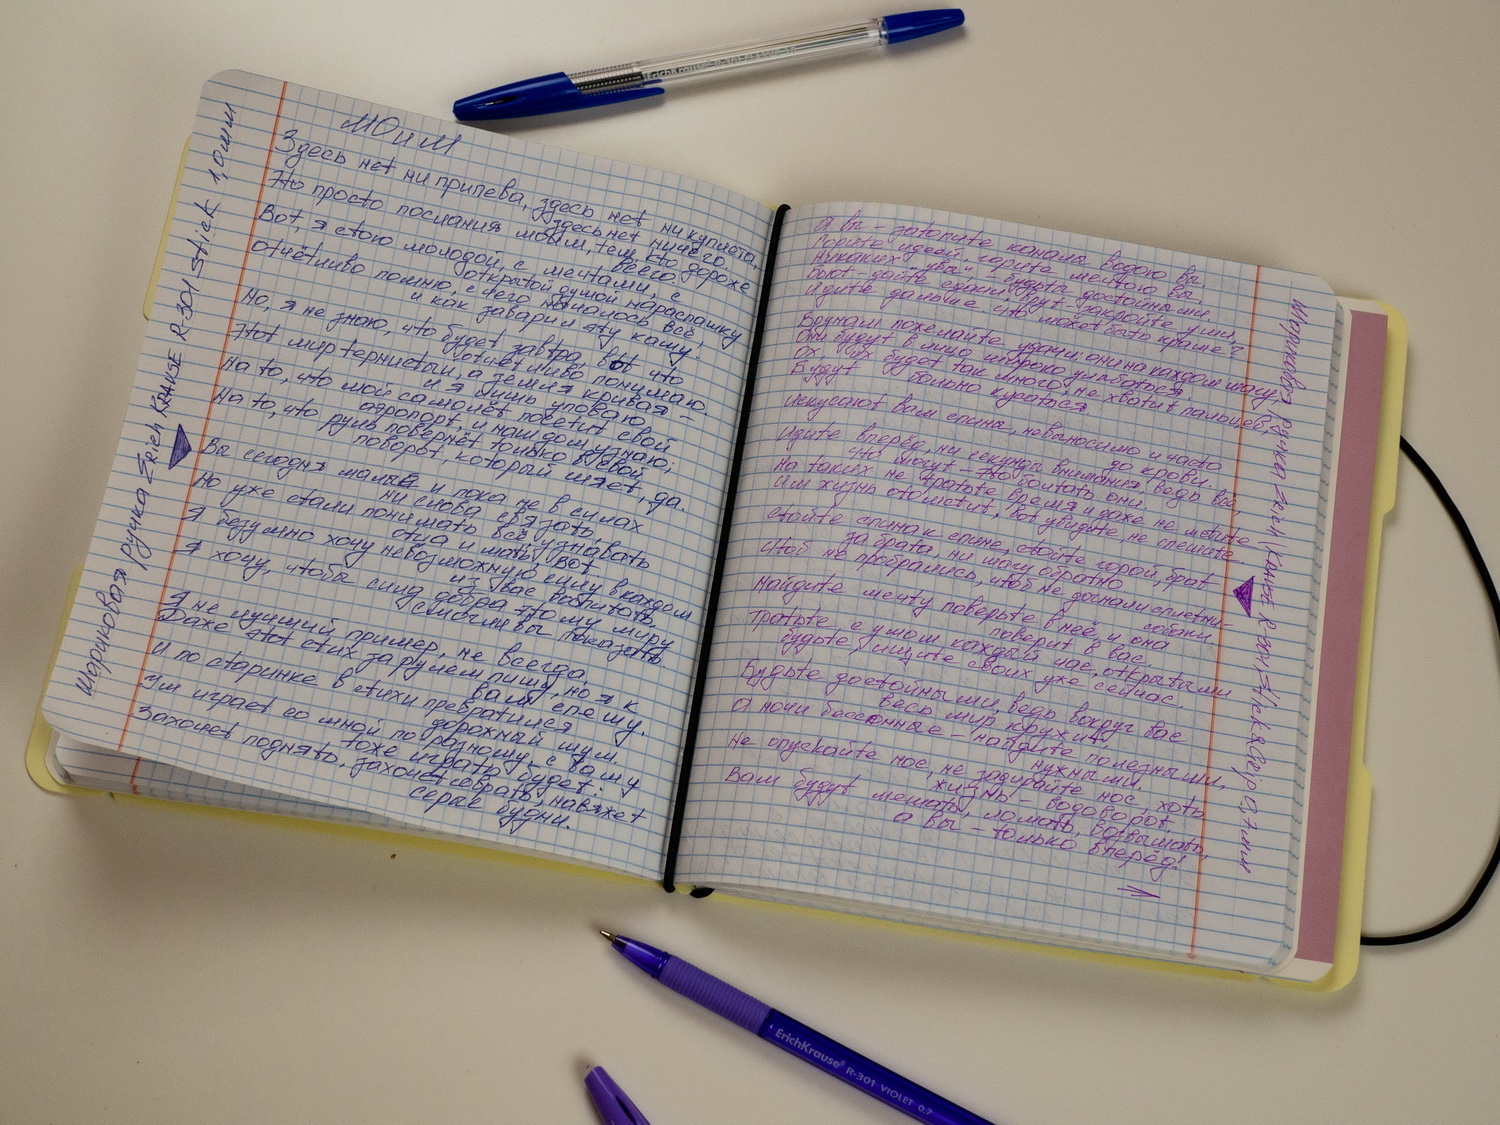 МОиМ
Здесь нет ни припева, здесь нет ни куплета,
здесь нет ничего
Но просто послания моим, тем, кто дороже
всего.
Вот, я стою молодой, с мечтами, с
открытой душой нараспашку
Отчётливо помню, с чего началось всё,
и как заварил эту кашу.
Но, я не знаю, что будет завтра, вот что
отчётливо понимаю
Этот мир тернистый, а земля кривая -
и я лишь уповаю
На то, что мой самолёт посетит свой
аэропорт, и наш дом узнаю;
На то, что руль повернёт только в левой
поворот, который шлёт, да.
Вы сегодня малы и пока не в силах
ни слова связать,
Но уже стали понимать, всё узнавать
отца и мать, вот
Я безумно хочу невозможную силу в каждом
из вас воспитать
Я хочу, чтобы силу добра этому миру
смогли вы показать
Я не лучший пример, не всегда
Даже этот стих за рулем пишу, но я к
вам спешу,
И по старинке в стихи превратился
дорожный шум.
Ум играет со мной по разному, с вами
тоже играть будет:
Захочет поднять, захочет собрать, навяжет
серые будни.
Шариковая ручка Erich KRAUSE R-301 Stick 1,0мм
А вы - затопите каналы водою вы.
Горите идеей, горите мечтою вы.
Никаких "увы", будьте достойными
Бьют - дайте сдачи, врут - закройте уши,
Идите дальше. Что может быть краше?
Врунам пожелайте удачи: они на каждом шагу
Они будут в лицо широко улыбаться,
Ох, их будет так много, не хватит пальцев,
Будут больно кусаться
Искусают вам спины, невыносимо и часто
до крови.
Идите вперёд, ни секунды внимания, ведь всё,
что могут - это болтать они.
На таких не тратьте время и даже не мстите -
Им жизнь отомстит, вот увидите, не спешите
Стойте спина к спине, стойте горой, брат
за брата, ни шагу обратно
Чтоб не програлись, чтоб не догнали сплетни-
собаки
Найдите мечту поверьте в неё, и она
поверит в вас.
Тратьте с умом каждый час, открытыми
будьте, ищите своих уже сейчас.
Будьте достойными, ведь вокруг вас
весь мир кружит,
А ночи бессонные - найдите полезными,
нужными.
Не опускайте нос, не задирайте нос, хоть
жизнь - водоворот.
Вам будут мешать, ломать,
а вы - только вперёд!
Шариковая ручка Erich Krause R-301
ErichKrause R-301 CLASSIC 1.0
ErichKrause® R-301 VIOLET 0.7